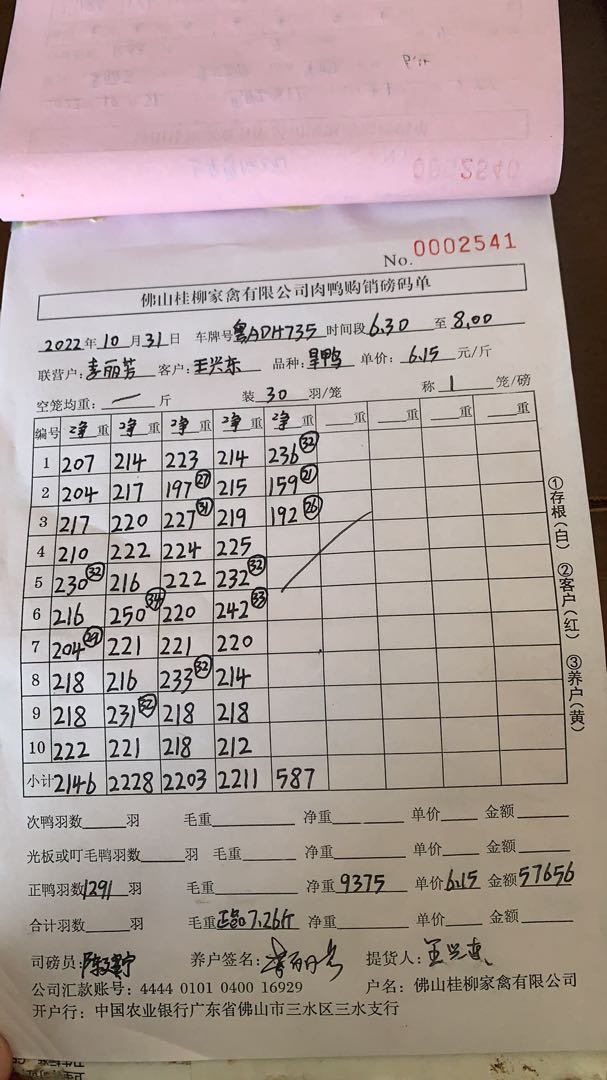 0002540
No. 0002541
佛山桂柳家禽有限公司肉鸭购销磅码单
2022年10月31日 车牌号粤ADH735 时间段6.30 至 8.00
联营户:李丽芳 客户:王兴东 品种:旱鸭 单价:6.15 元/斤
空笼均重:一 斤 装 30 羽/笼 称 1 笼/磅
编号 净重 净重 净重 净重 净重 重 重 重 重
1 207 214 223 214 236(32)
2 204 217 197(27) 215 159(21)
3 217 220 227(31) 219 192(26)
4 210 222 224 225
5 230(32) 216 222 232(32)
6 216 250(34) 220 242(33)
7 204(29) 221 221 220
8 218 216 233(32) 214
9 218 231(32) 218 218
10 222 221 218 212
小计 2146 2228 2203 2211 587
①存根(白) ②客户(红) ③养户(黄)
次鸭羽数 羽 毛重 净重 单价 金额
光板或叮毛鸭羽数 羽 毛重 净重 单价 金额
正鸭羽数1291羽 毛重 净重 9375 单价6.15 金额57656
合计羽数 羽 毛重 7.26斤 净重 单价 金额
司磅员: 养户签名:李丽芳 提货人:王兴东
公司汇款账号:4444 0101 0400 16929 户名:佛山桂柳家禽有限公司
开户行:中国农业银行广东省佛山市三水区三水支行